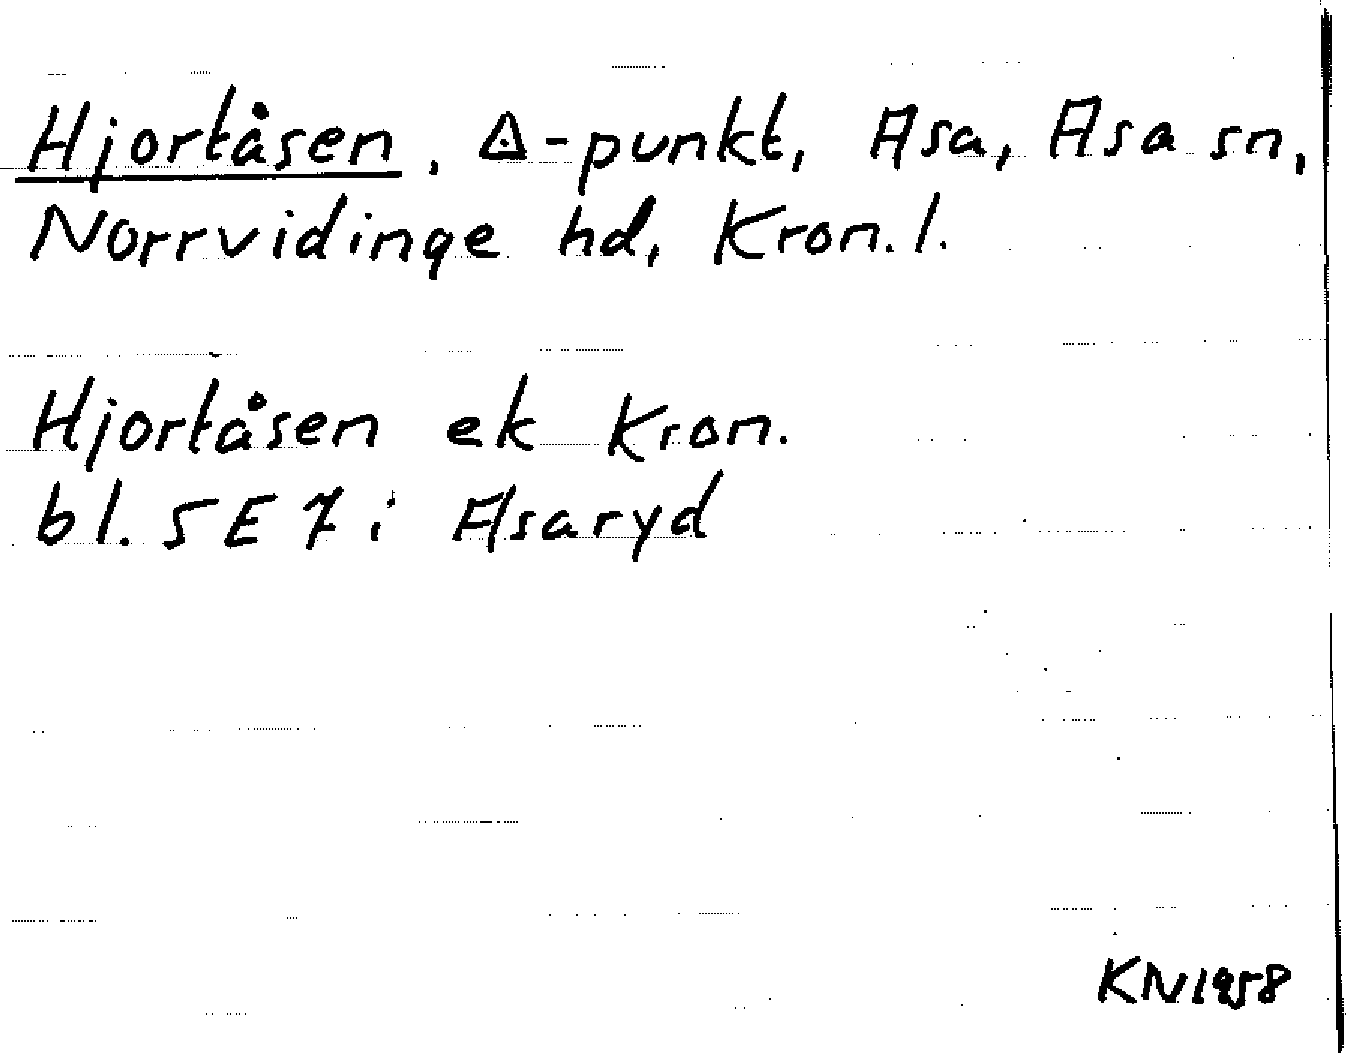 Hjortåsen, △-punkt, Asa, Asa sn,
Norrvidinge hd, Kron. l.
Hjortåsen ek Kron.
bl. 5 E 7 i Asaryd
KN 1958